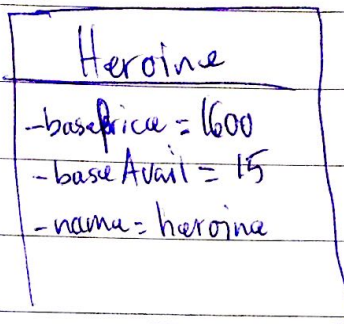 Heroine
-basePrice = 1600
-baseAvail = 15
-name = heroine